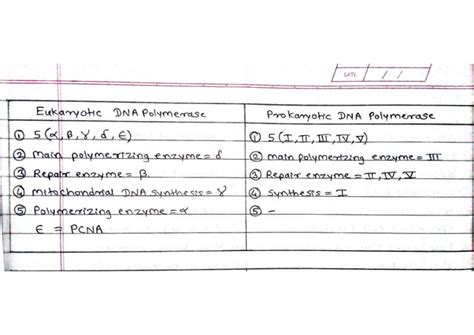 DATE / /
Eukaryotic DNA Polymerase
① 5 (α, β, γ, δ, ε)
② Main polymerizing enzyme = δ
③ Repair enzyme = β.
④ Mitochondrial DNA synthesis = γ
⑤ Polymerizing enzyme = α
ε = PCNA
Prokaryotic DNA Polymerase
① 5 (I, II, III, IV, V)
② main polymerizing enzyme = III
③ Repair enzyme = II, IV, V
④ Synthesis = I
⑤ -